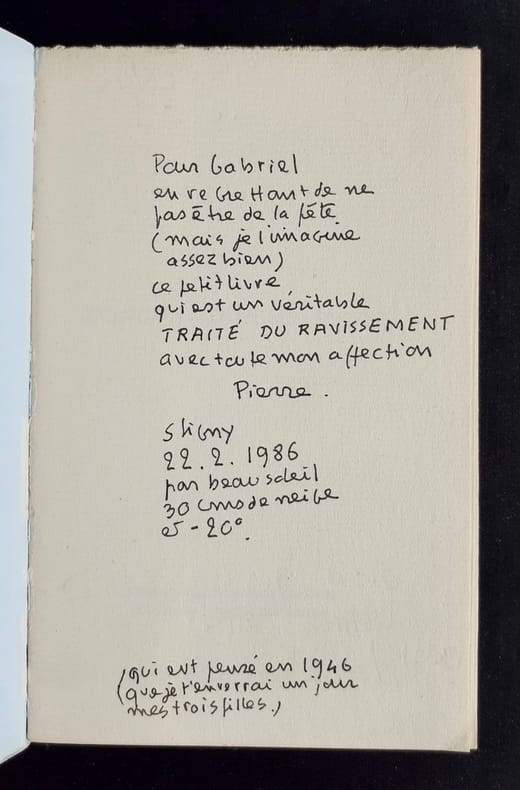 Pour Gabriel
en regrettant de ne
pas être de la fête
(mais je l'imagine
assez bien)
ce petit livre
qui est un véritable
TRAITÉ DU RAVISSEMENT
avec toute mon affection
Pierre.
22.2.1986
par beau soleil
30 cms de neige
et -20°.
(qui eut pensé en 1946
(que je t'enverrai un jour
mes trois filles.)